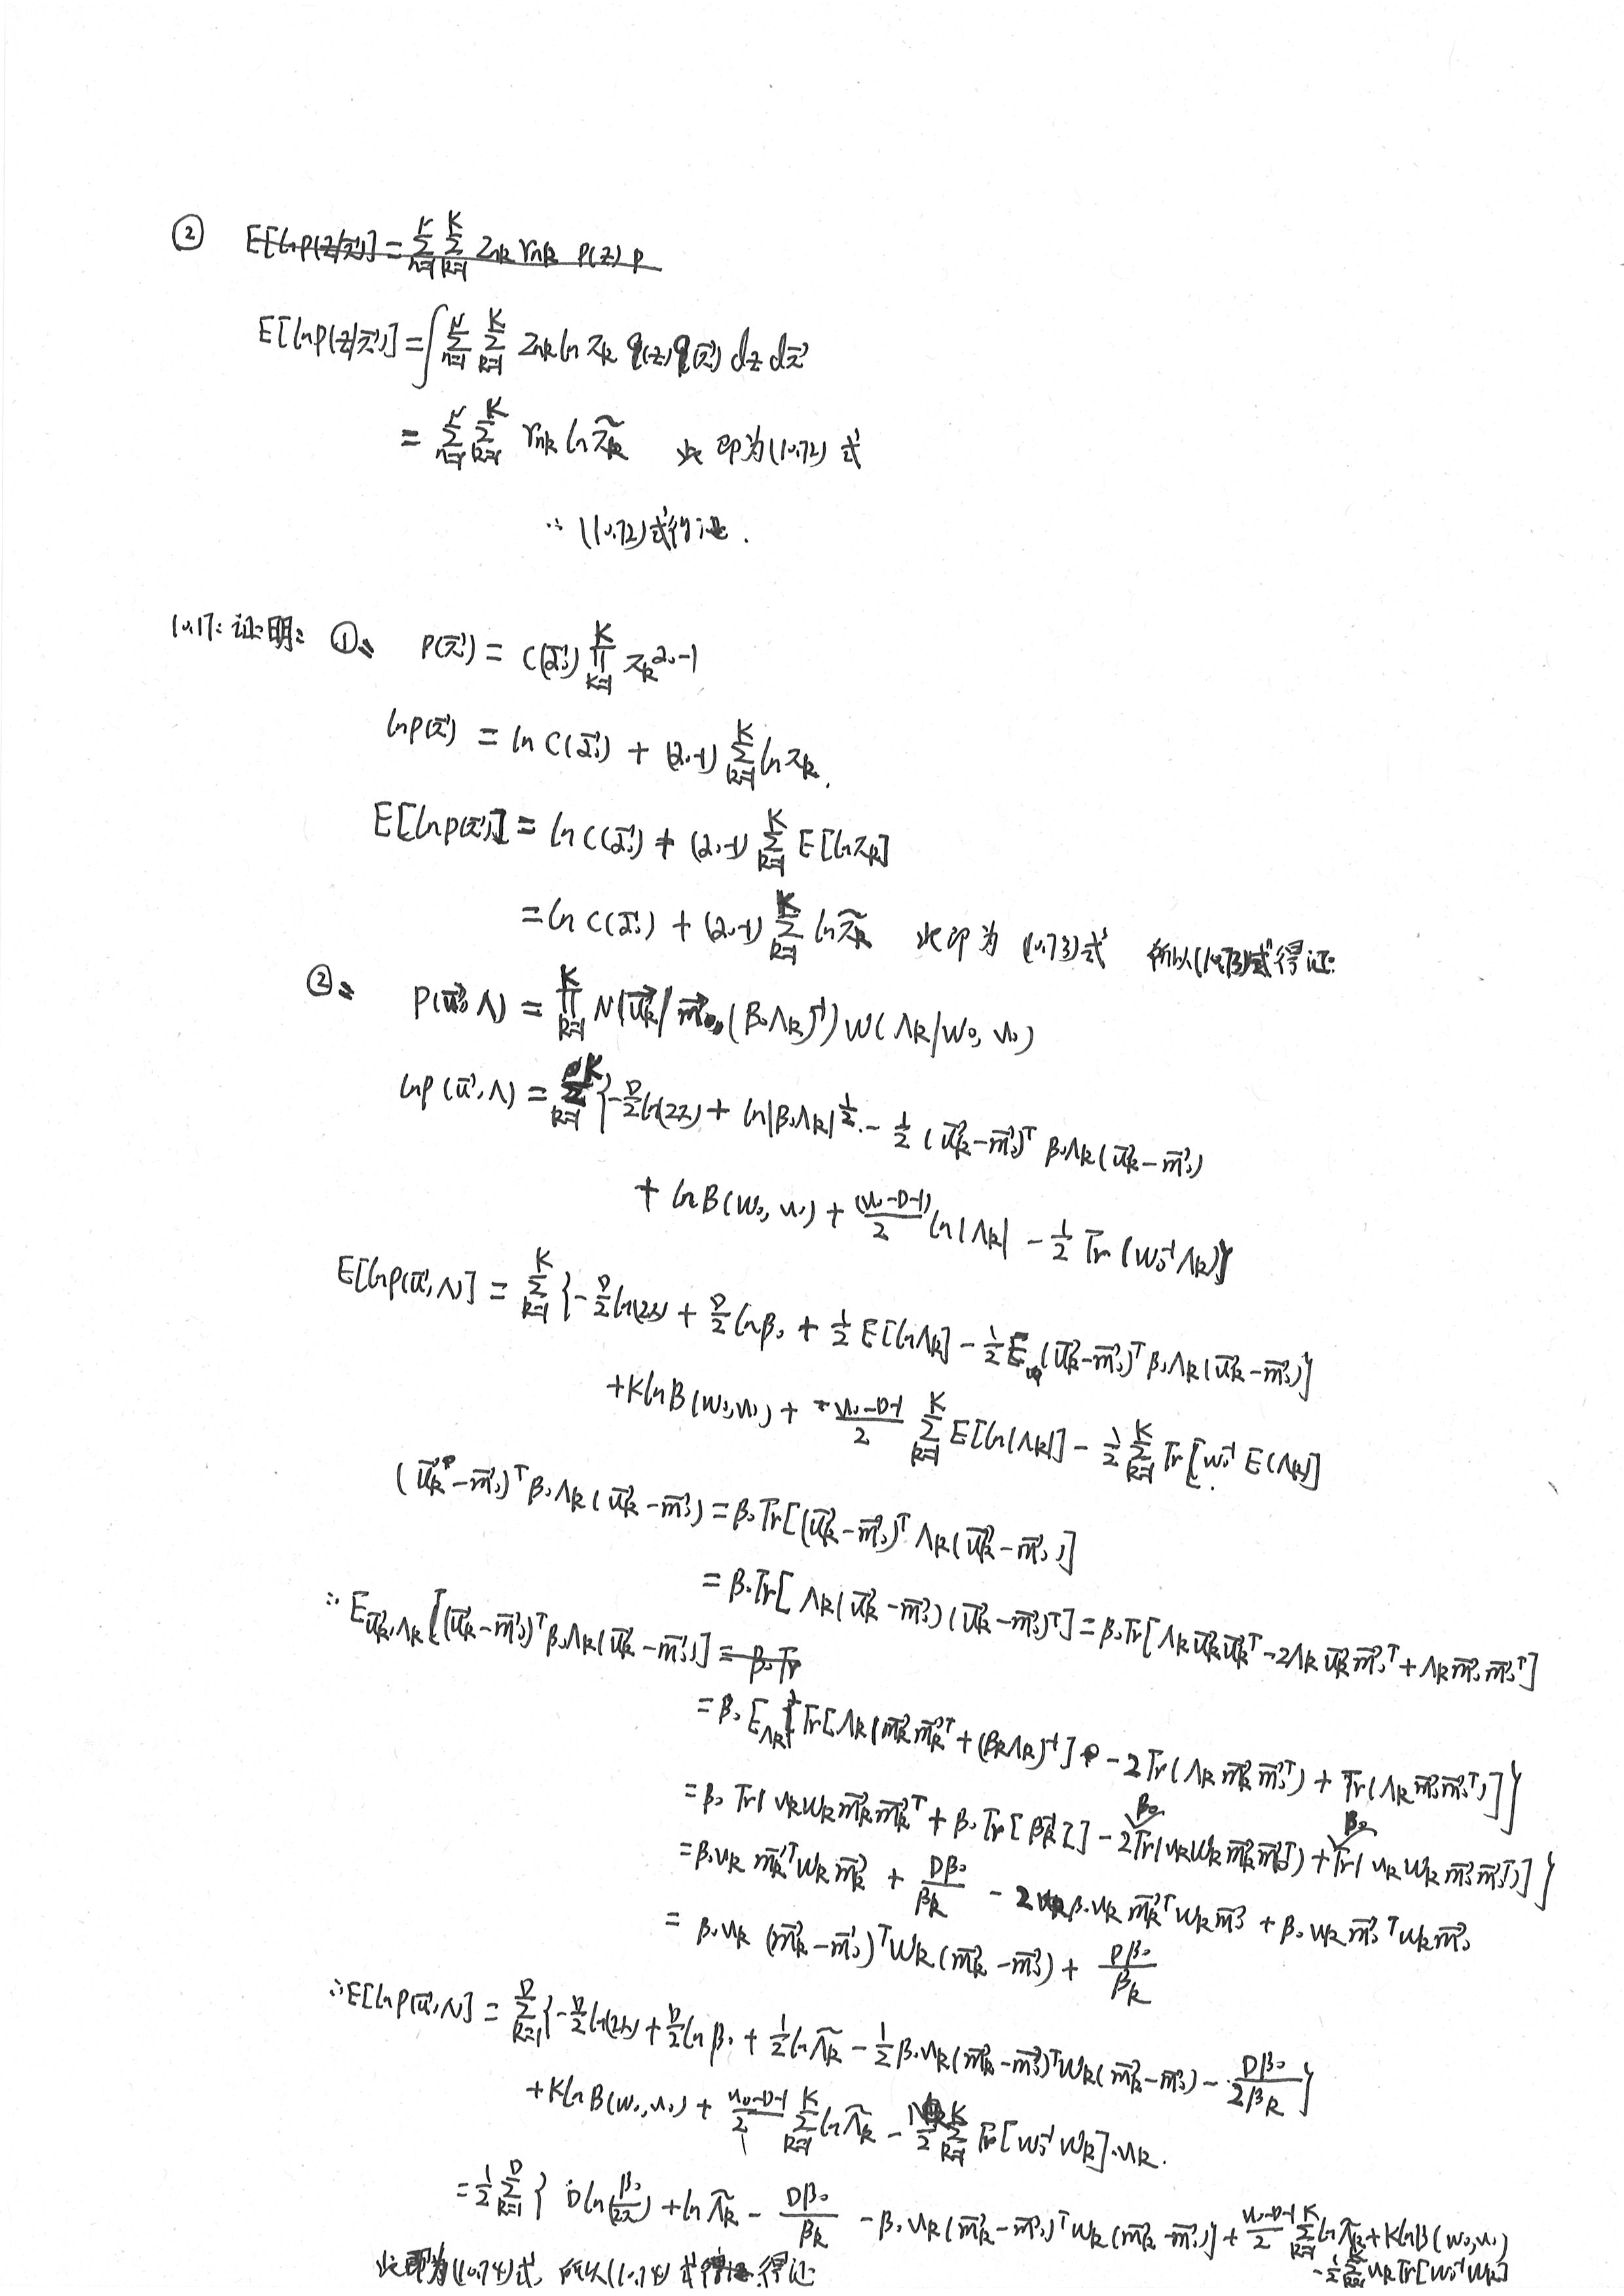 ② E[lnp(z/π⃗)] = Σ_{n=1}^{N} Σ_{k=1}^{K} z_{nk} r_{nk} p(z) p
E[lnp(z/π⃗)] = ∫ Σ_{n=1}^{N} Σ_{k=1}^{K} z_{nk} ln π_k q(z) q(π⃗) dz dπ⃗
= Σ_{n=1}^{N} Σ_{k=1}^{K} r_{nk} ln π̃_k 此即为(10.72)式
∴ (10.72)式得证.
10.17: 证明: ①: P(π⃗) = C(α⃗_0) ∏_{k=1}^{K} π_k^{α_0-1}
lnp(π⃗) = ln C(α⃗_0) + (α_0-1) Σ_{k=1}^{K} ln π_k.
E[lnp(π⃗)] = ln C(α⃗_0) + (α_0-1) Σ_{k=1}^{K} E[lnπ_k]
= ln C(α⃗_0) + (α_0-1) Σ_{k=1}^{K} ln π̃_k 此即为 (10.73)式 所以(10.73)式得证.
②: P(u⃗, Λ) = ∏_{k=1}^{K} N(u⃗_k/m⃗_0, (β_0Λ_k)^{-1}) W(Λ_k/W_0, ν_0)
lnp(u⃗, Λ) = Σ_{k=1}^{K} {-D/2 ln(2π) + ln|β_0Λ_k|^{1/2} - 1/2 (u⃗_k-m⃗_0)^T β_0Λ_k(u⃗_k-m⃗_0)
+ lnB(W_0, ν_0) + (ν_0-D-1)/2 ln|Λ_k| - 1/2 Tr(W_0^{-1}Λ_k)}
E[lnp(u⃗,Λ)] = Σ_{k=1}^{K} {-D/2 ln(2π) + D/2 lnβ_0 + 1/2 E[lnΛ_k] - 1/2 E(u⃗_k-m⃗_0)^T β_0Λ_k(u⃗_k-m⃗_0)}
+KlnB(W_0,ν_0) + (ν_0-D-1)/2 Σ_{k=1}^{K} E[ln|Λ_k|] - 1/2 Σ_{k=1}^{K} Tr[W_0^{-1} E(Λ_k)]
(u⃗_k-m⃗_0)^T β_0Λ_k(u⃗_k-m⃗_0) = β_0Tr[(u⃗_k-m⃗_0)^T Λ_k(u⃗_k-m⃗_0)]
= β_0Tr[Λ_k(u⃗_k-m⃗_0)(u⃗_k-m⃗_0)^T] = β_0Tr[Λ_k u⃗_k u⃗_k^T - 2Λ_k u⃗_k m⃗_0^T + Λ_k m⃗_0 m⃗_0^T]
∴ E_{u⃗_k,Λ_k}[(u⃗_k-m⃗_0)^T β_0Λ_k(u⃗_k-m⃗_0)] = β_0Tr
= β_0 E_{Λ_k}{Tr[Λ_k(m⃗_k m⃗_k^T + (β_kΛ_k)^{-1}] - 2Tr(Λ_k m⃗_k m⃗_0^T) + Tr(Λ_k m⃗_0 m⃗_0^T)]}
= β_0 Tr(ν_k W_k m⃗_k m⃗_k^T + β_0 Tr[β_k^{-1} I] - 2β_0Tr(ν_k W_k m⃗_k m⃗_0^T) + β_0Tr(ν_k W_k m⃗_0 m⃗_0^T)]}
= β_0ν_k m⃗_k^T W_k m⃗_k + Dβ_0/β_k - 2β_0ν_k m⃗_k^T W_k m⃗_0 + β_0ν_k m⃗_0^T W_k m⃗_0
= β_0ν_k (m⃗_k-m⃗_0)^T W_k(m⃗_k-m⃗_0) + Dβ_0/β_k
∴E[lnp(u⃗,Λ)] = Σ_{k=1}^{D} {-D/2 ln(2π) + D/2 lnβ_0 + 1/2 lnΛ̃_k - 1/2 β_0ν_k(m⃗_k-m⃗_0)^T W_k(m⃗_k-m⃗_0) - Dβ_0/2β_k}
+KlnB(W_0,ν_0) + (ν_0-D-1)/2 Σ_{k=1}^{K} lnΛ̃_k - 1/2 Σ_{k=1}^{K} Tr[W_0^{-1}W_k]·ν_k.
= 1/2 Σ_{k=1}^{D} { Dln(β_0/2π) + lnΛ̃_k - Dβ_0/β_k - β_0ν_k(m⃗_k-m⃗_0)^T W_k(m⃗_k-m⃗_0)} + (ν_0-D-1)/2 Σ_{k=1}^{K} lnΛ̃_k + KlnB(W_0,ν_0)
- 1/2 Σ_{k=1}^{K} ν_kTr[W_0^{-1}W_k]
此即为(10.74)式, 所以(10.74)式得证